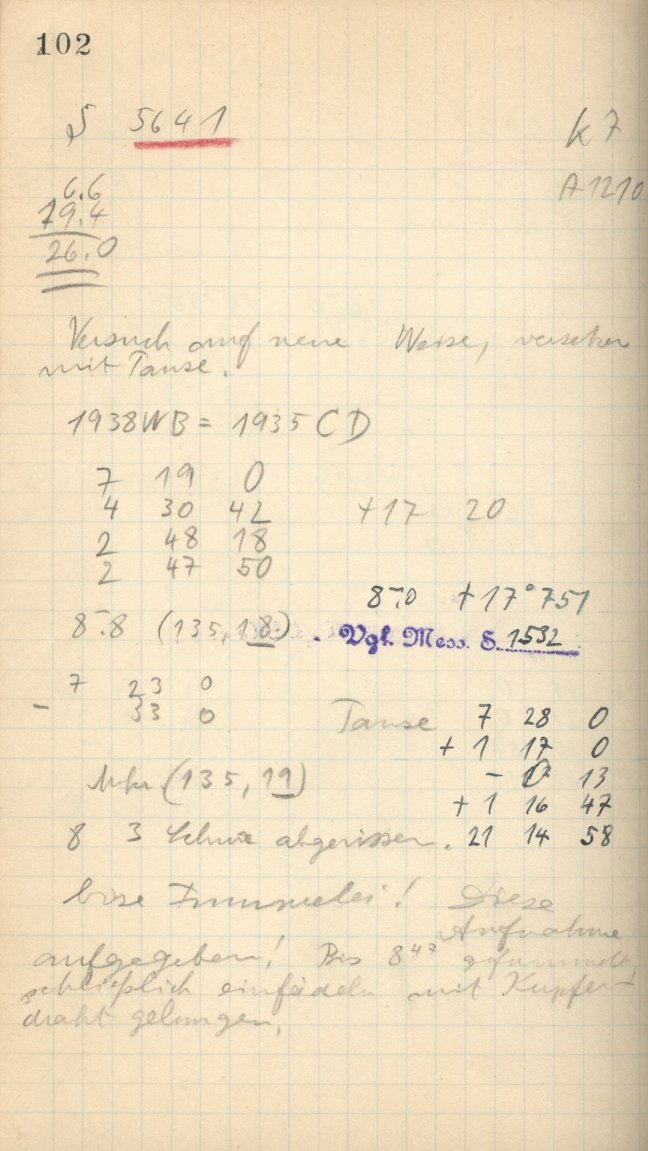 102
S 5641
K 7
6.6
A 1210
19.4
26.0
Versuch auf neue Weise, versetzen
mit Tause.
1938 WB = 1935 CD
7 19 0
4 30 42 +17 20
2 48 18
2 47 50
8.0 +17°751
8.8 (135, 18). Vgl. Mess. S. 1532
7 23 0
- 33 0
Tause 7 28 0
+ 1 17 0
- 0 13
(135, 19)
+ 1 16 47
8 3 Schnur abgerissen. 21 14 58
böse Fummelei! Diese
Aufnahme
aufgegeben! Bis 8 47 gefummelt,
schließlich einfädeln mit Kupfer-
draht gelungen.